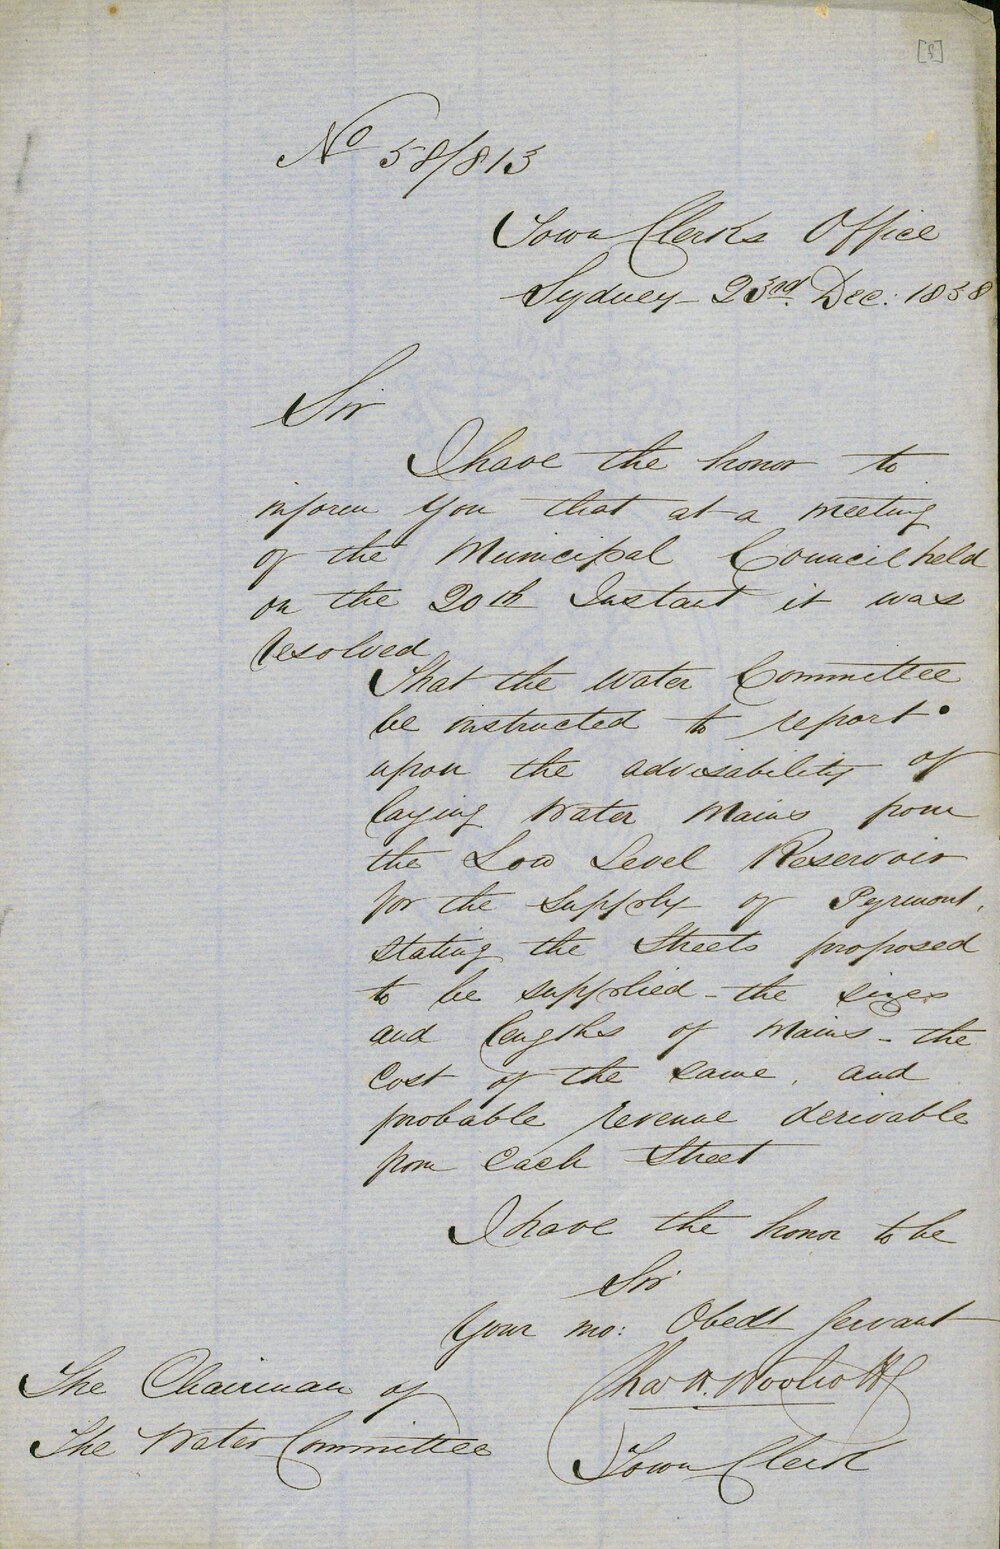 No 58/813
Town Clerks Office
Sydney 23rd. Dec: 1858
Sir
I have the honor to
inform You that at a meeting
of the Municipal Council held
on the 20th Instant it was
resolved
That the Water Committee
be instructed to report
upon the advisability of
laying Water Mains from
the Low Level Reservoir
for the supply of Pyrmont,
stating the Streets proposed
to be supplied - the sizes
and lengths of Mains - the
Cost of the same, and
probable revenue derivable
from Each Street
I have the honor to be
Sir
Your mo: Obedt Servant
Chas H. Woolcott
Town Clerk
The Chairman of
The Water Committee